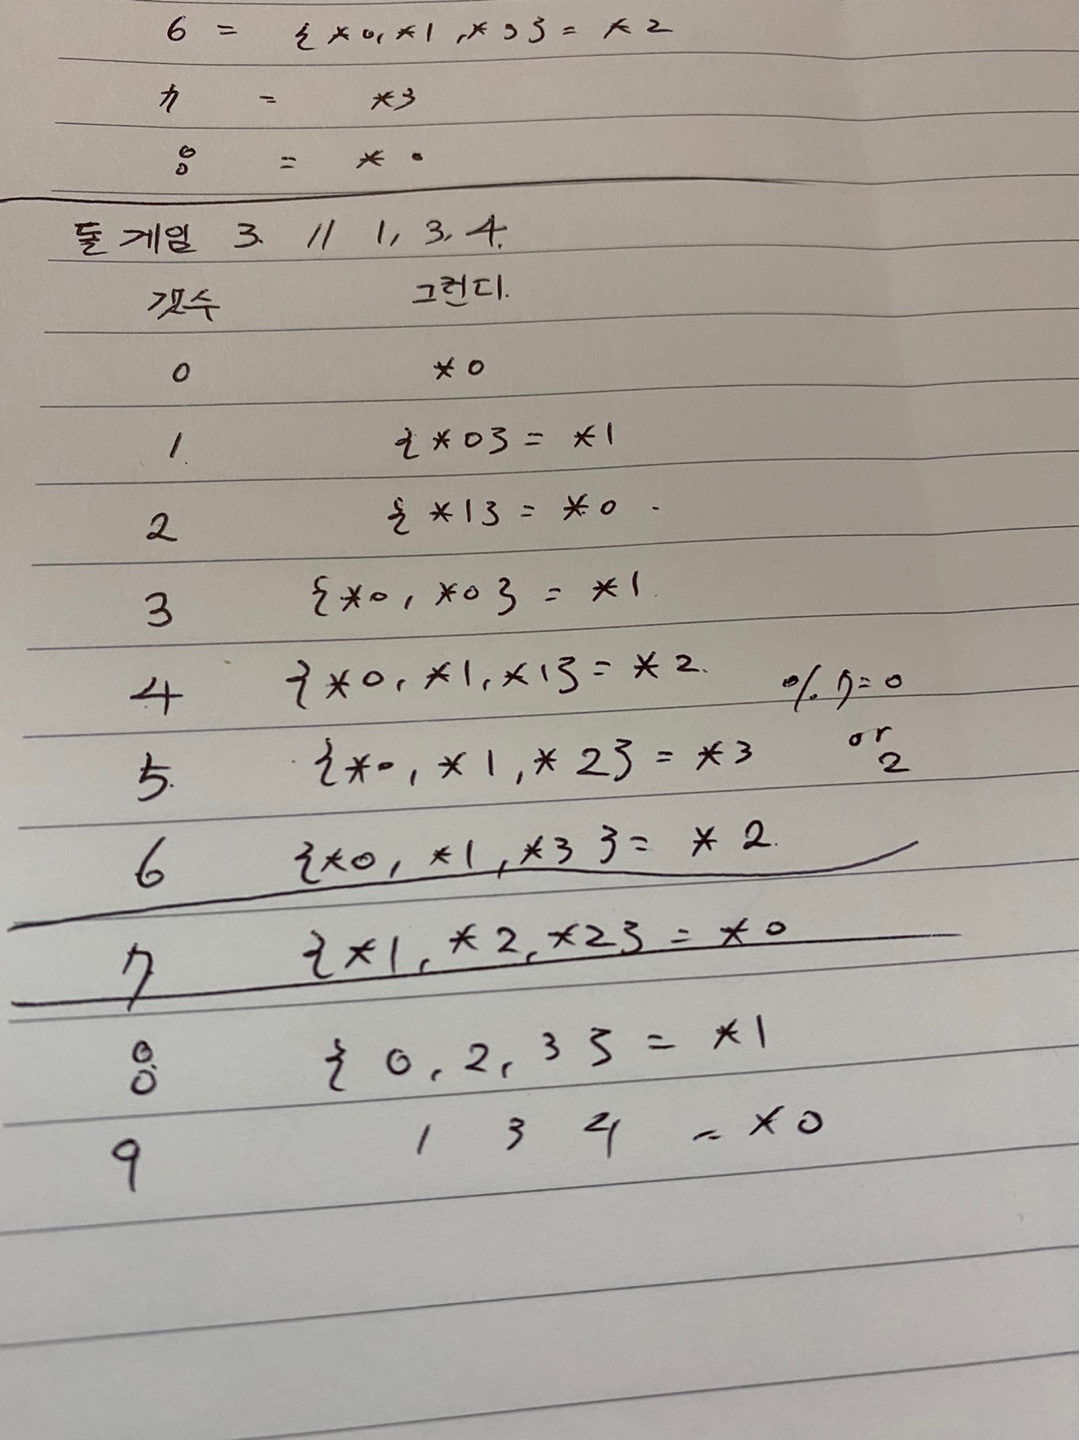 6 = {*0, *1, *3} = *2
7 = *3
8 = *0
돌 게임 3. // 1, 3, 4.
갯수 그런디.
0 *0
1. {*0} = *1
2 {*1} = *0.
3 {*0, *0} = *1.
4 {*0, *1, *1} = *2. % 7 = 0
5. {*0, *1, *2} = *3 or 2
6 {*0, *1, *3} = *2.
7 {*1, *2, *2} = *0
8 {0, 2, 3} = *1
9 1 3 4 = *0